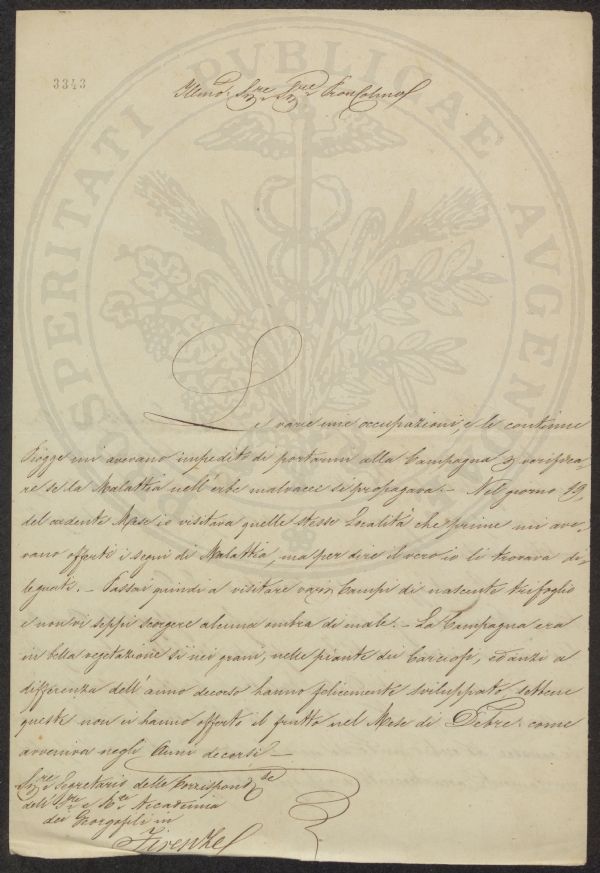 3343
Illmo. Sre. Sre. Pron Colmo
Le varie mie occupazioni, e le continue
Piogge mi avevano impedito di portarmi alla Campagna p verifica-
re se la Malattia nell'erbe malvacee si propagava. - Nel giorno 19,
del cadente Mese io visitava quelle stesse Località che prime mi ave-
vano offerti i segni di Malattia, ma per dire il vero io li trovava di-
leguati. - Passai quindi a visitare varj Campi di nascente trifoglio
e non vi seppi scorgere alcuna ombra di male. - La Campagna era
in bella vegetazione sì nei grani, nelle piante dei Carciofi, ed anzi a
differenza dell'anno decorso hanno felicemente sviluppato, sebbene
queste non ci hanno offerto il frutto nel Mese di Xbre. come
avveniva negli Anni decorsi -
Sre. Segretario delle Corrispondze
dell' I.e R.e Accademia
dei Georgofili in
Firenze
PROSPERITATI PVBLICAE AVGENDAE